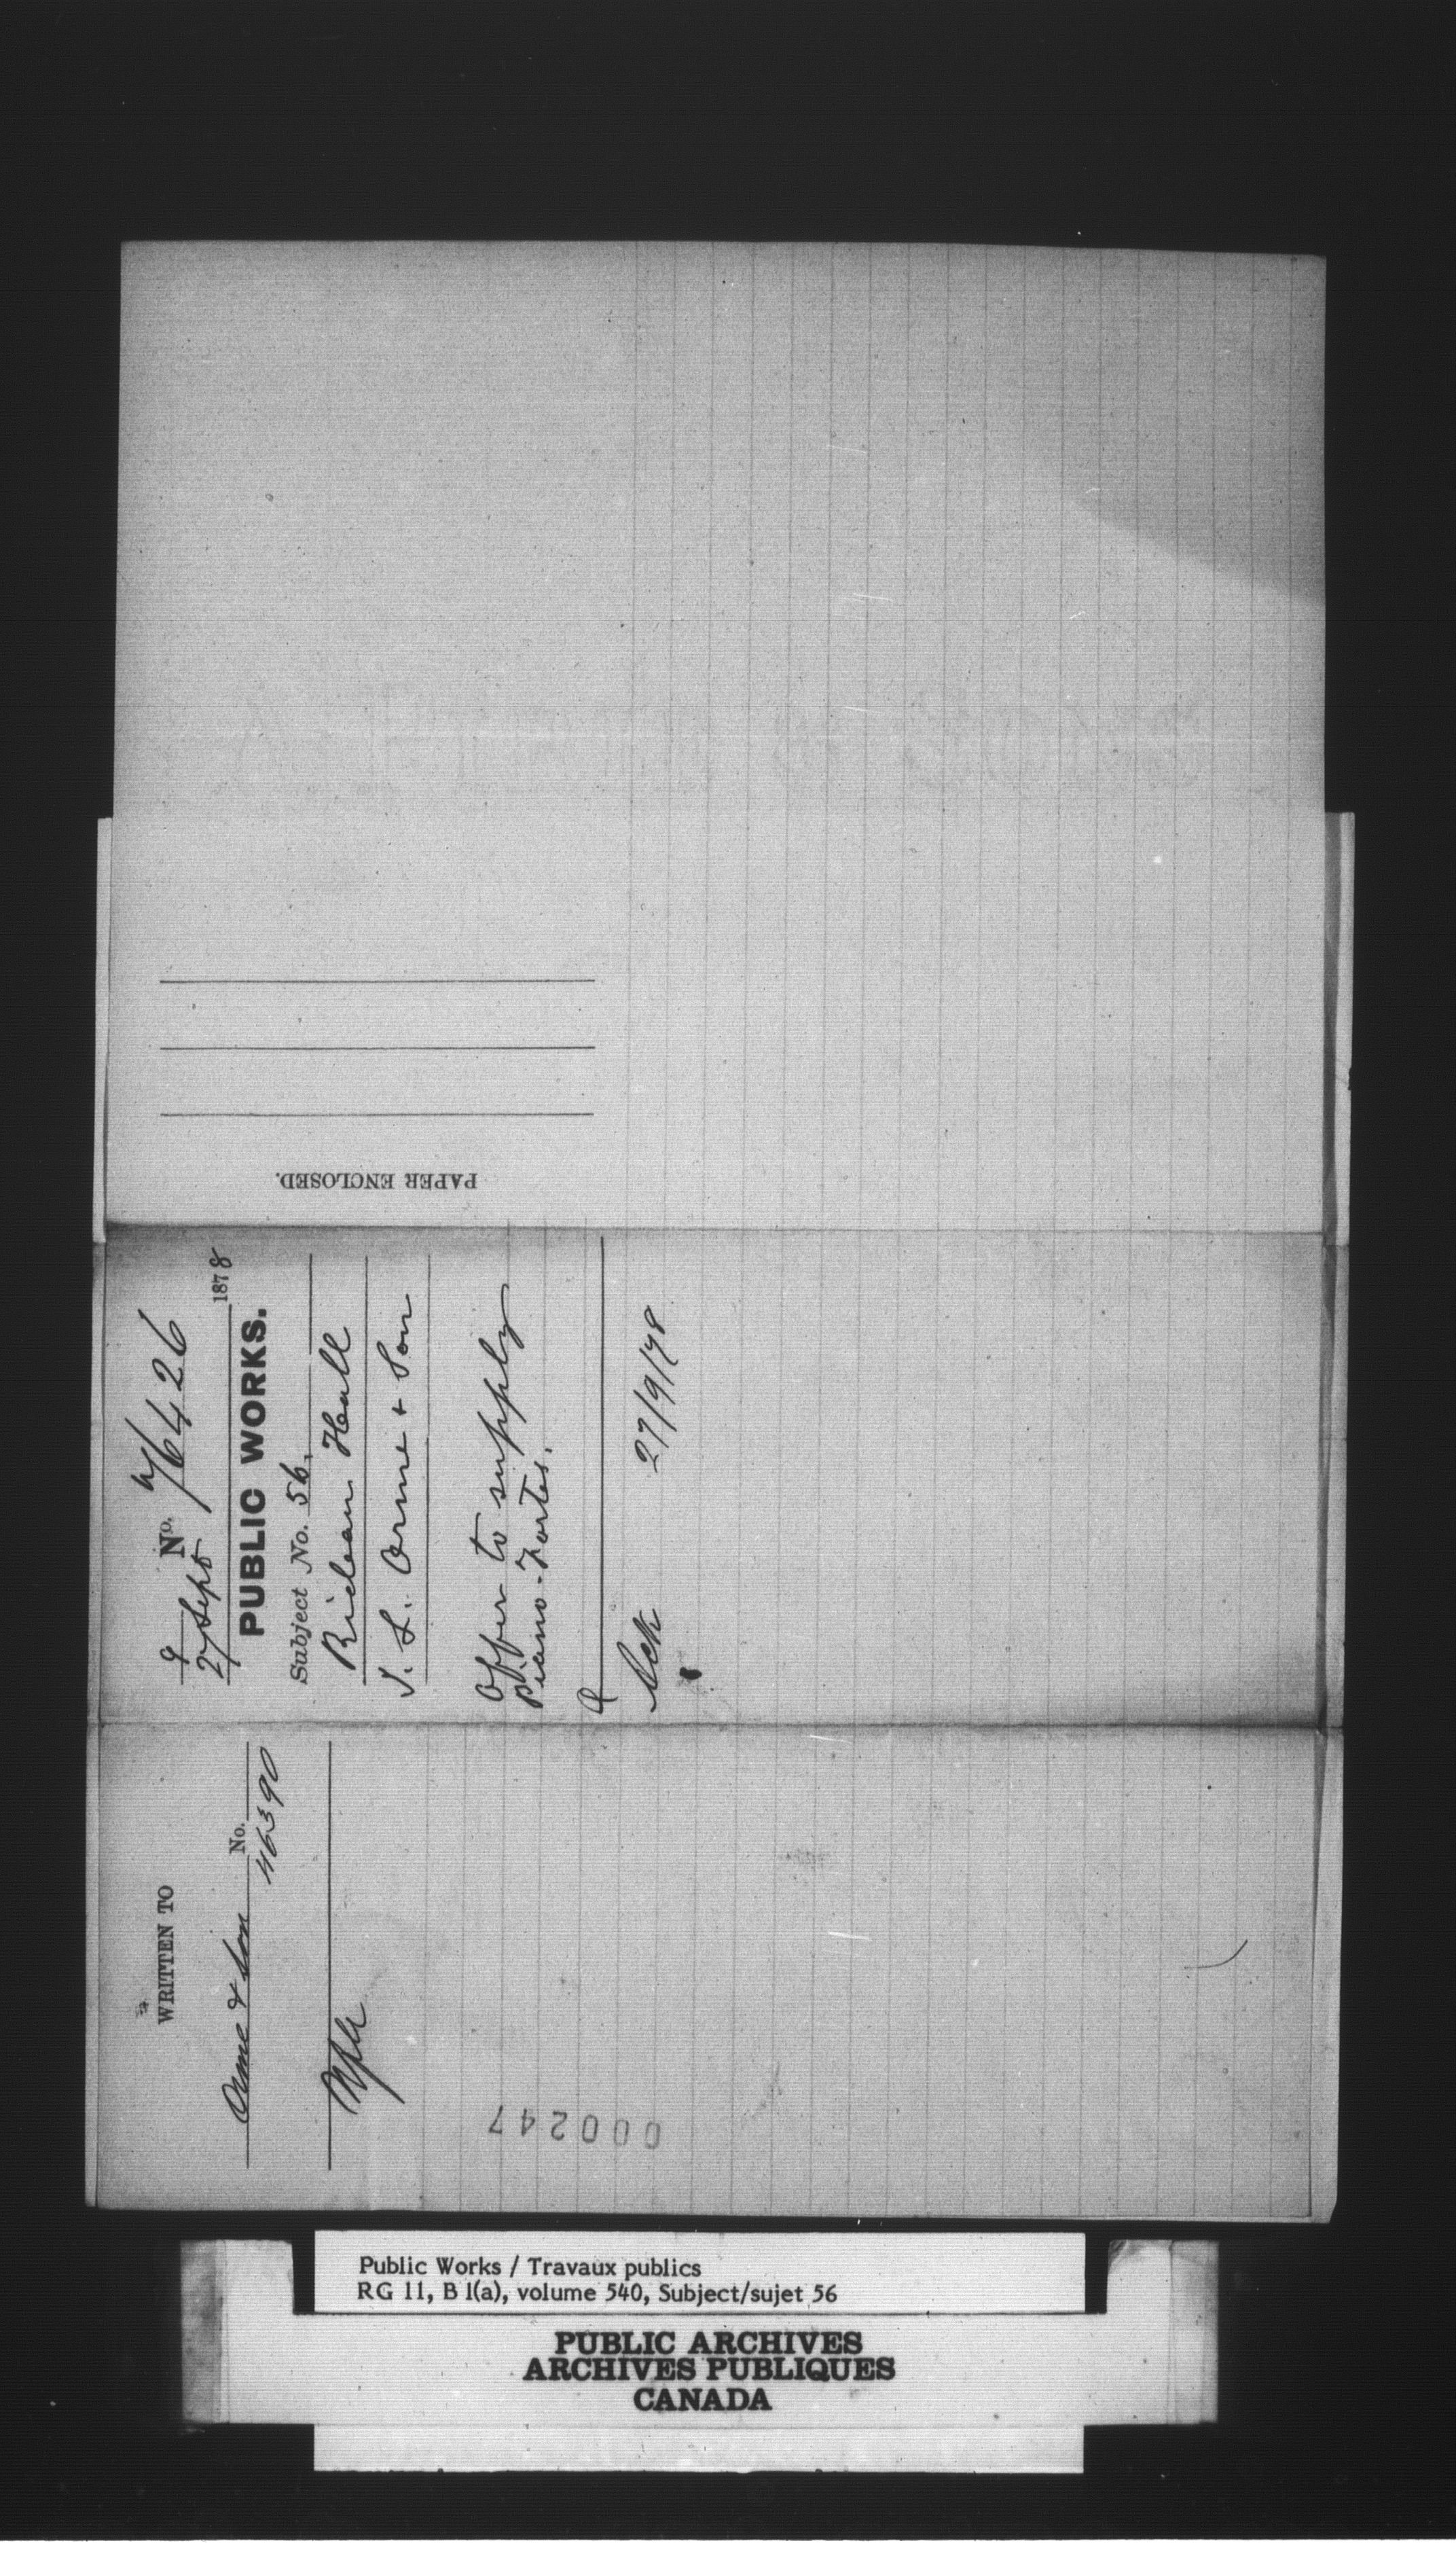 WRITTEN TO
No.
Orme & Son
46390
No. 76426
27 Sept 1878
PUBLIC WORKS.
Subject No. 56.
Rideau Hall
J. L. Orme + Son
Offer to supply
Piano-Fortes.
Ack 27/9/78
PAPER ENCLOSED.
000247
Public Works / Travaux publics
RG 11, B 1(a), volume 540, Subject/sujet 56
PUBLIC ARCHIVES
ARCHIVES PUBLIQUES
CANADA